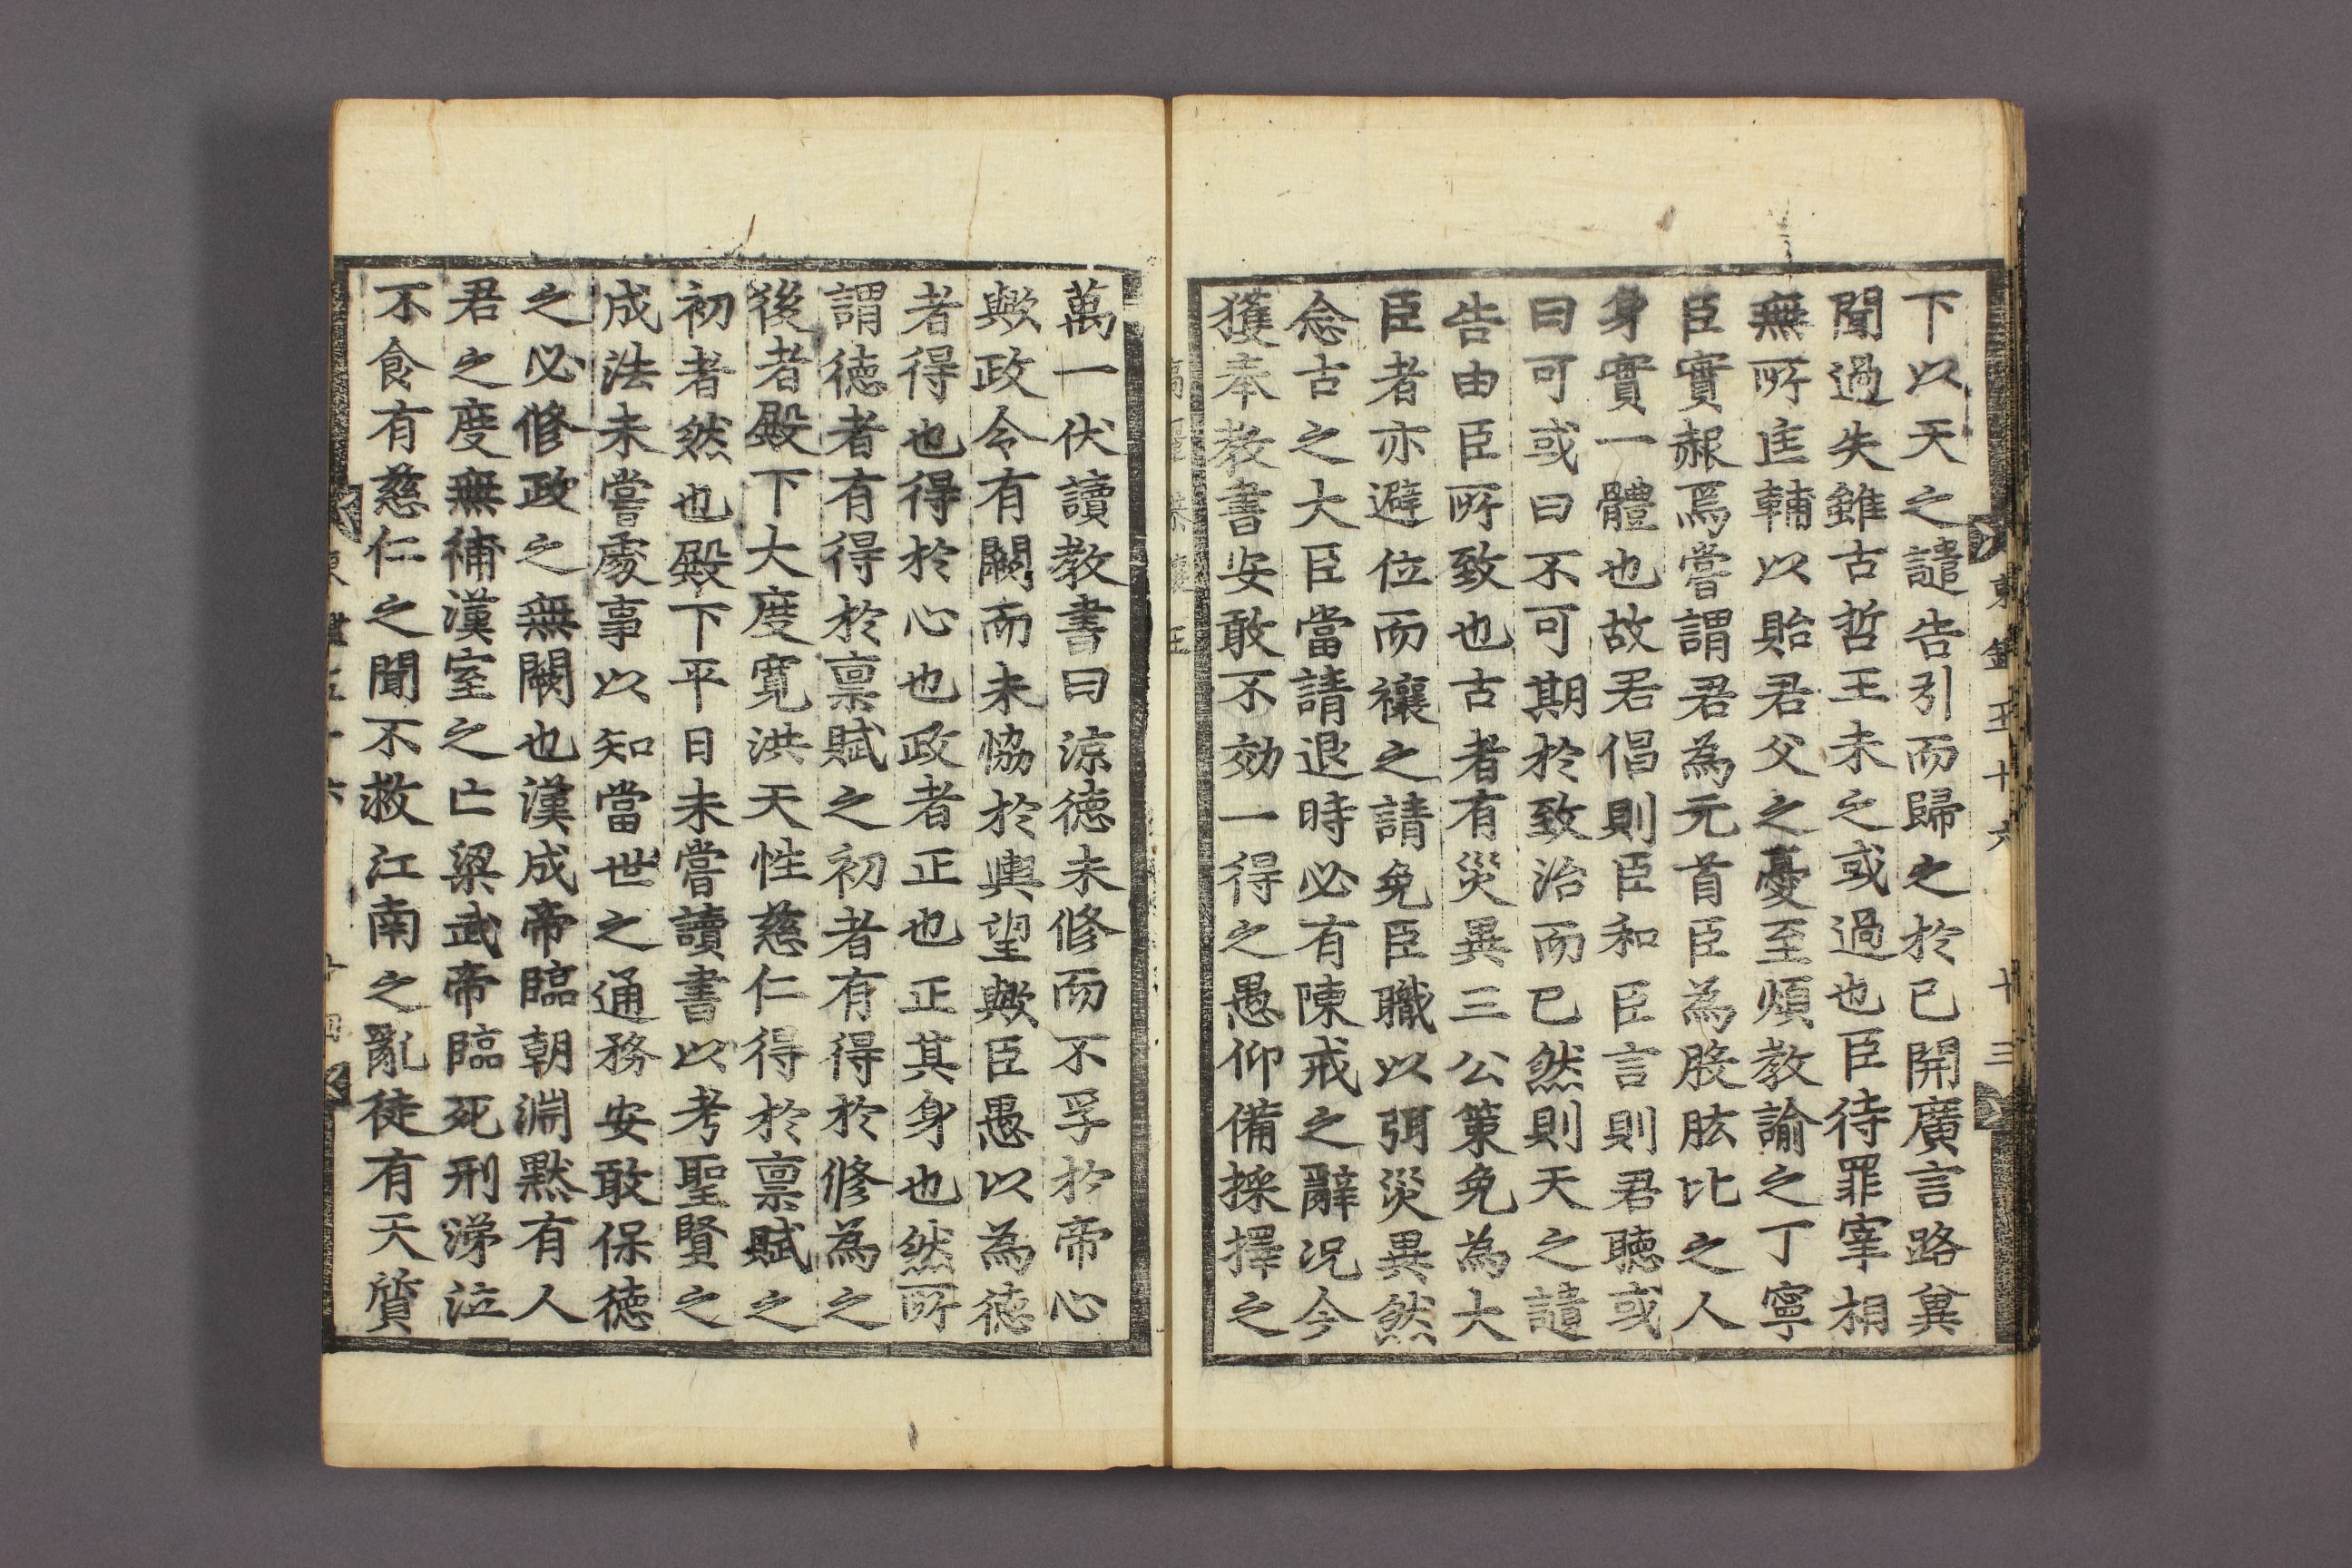 下以天之譴告引而歸之於已開廣言路兾
聞過失雖古哲王未之或過也臣待罪宰相
無所匡輔以貽君父之憂至煩教諭之丁寧
臣實赧焉嘗謂君為元首臣為股肱比之人
身實一體也故君倡則臣和臣言則君聽或
曰可或曰不可期於致治而已然則天之譴
告由臣所致也古者有災異三公策免為大
臣者亦避位而禳之請免臣職以弭災異然
念古之大臣當請退時必有陳戒之辭况今
獲奉教書安敢不効一得之愚仰備採擇之
東鑑五十六 十三
萬一伏讀教書曰涼德未修而不孚於帝心
歟政令有闕而未恊於輿望歟臣愚以為德
者得也得於心也政者正也正其身也然所
謂德者有得於禀賦之初者有得於修為之
後者殿下大度寛洪天性慈仁得於禀賦之
初者然也殿下平日未嘗讀書以考聖賢之
成法未嘗處事以知當世之通務安敢保德
之必修政之無闕也漢成帝臨朝淵黙有人
君之度無補漢室之亡梁武帝臨死刑涕泣
不食有慈仁之聞不救江南之亂徒有天質